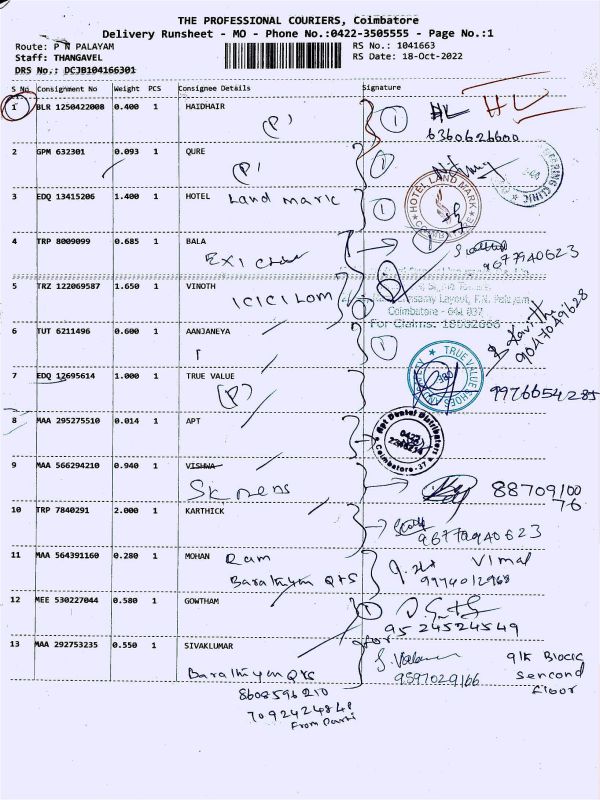 THE PROFESSIONAL COURIERS, Coimbatore
Delivery Runsheet - MO - Phone No.:0422-3505555 - Page No.:1
Route: P N PALAYAM
RS No.: 1041663
Staff: THANGAVEL
RS Date: 18-Oct-2022
DRS No.: DCJB104166301
S No. Consignment No Weight PCS Consignee Details Signature
1 BLR 1250422008 0.400 1 HAIDHAIR
(P) 1 HL HL
6360626600
2 GPM 632301 0.093 1 QURE
(P) 1
3 EDQ 13415206 1.400 1 HOTEL Land mark 1
HOTEL LAND MARK
COIMBATORE
4 TRP 8009099 0.685 1 BALA 1
9677940623
5 TRZ 122069587 1.650 1 VINOTH
ICICI LOM
Layout, P.N. Palayam
Coimbatore - 641 037
For Claims:
Kavitha
9047049628
6 TUT 6211496 0.600 1 AANJANEYA 1
7 EDQ 12695614 1.000 1 TRUE VALUE
(P)
TRUE VALUE SHOES
380
9976654285
8 MAA 295275510 0.014 1 APT
Apt Dental Distributors
0422
Coimbatore-37
9 MAA 566294210 0.940 1 VISHWA
88709100
76
10 TRP 7840291 2.000 1 KARTHICK
9677940623
11 MAA 564391160 0.280 1 MOHAN Ram
Barathiyar QRS
Vimal
9974012968
12 MEE 530227044 0.580 1 GOWTHAM 1
9524524549
13 MAA 292753235 0.550 1 SIVAKLUMAR
for
Barathiyar QRS
9597029166
Block
sencond
floor
8608596210
7092424848
From